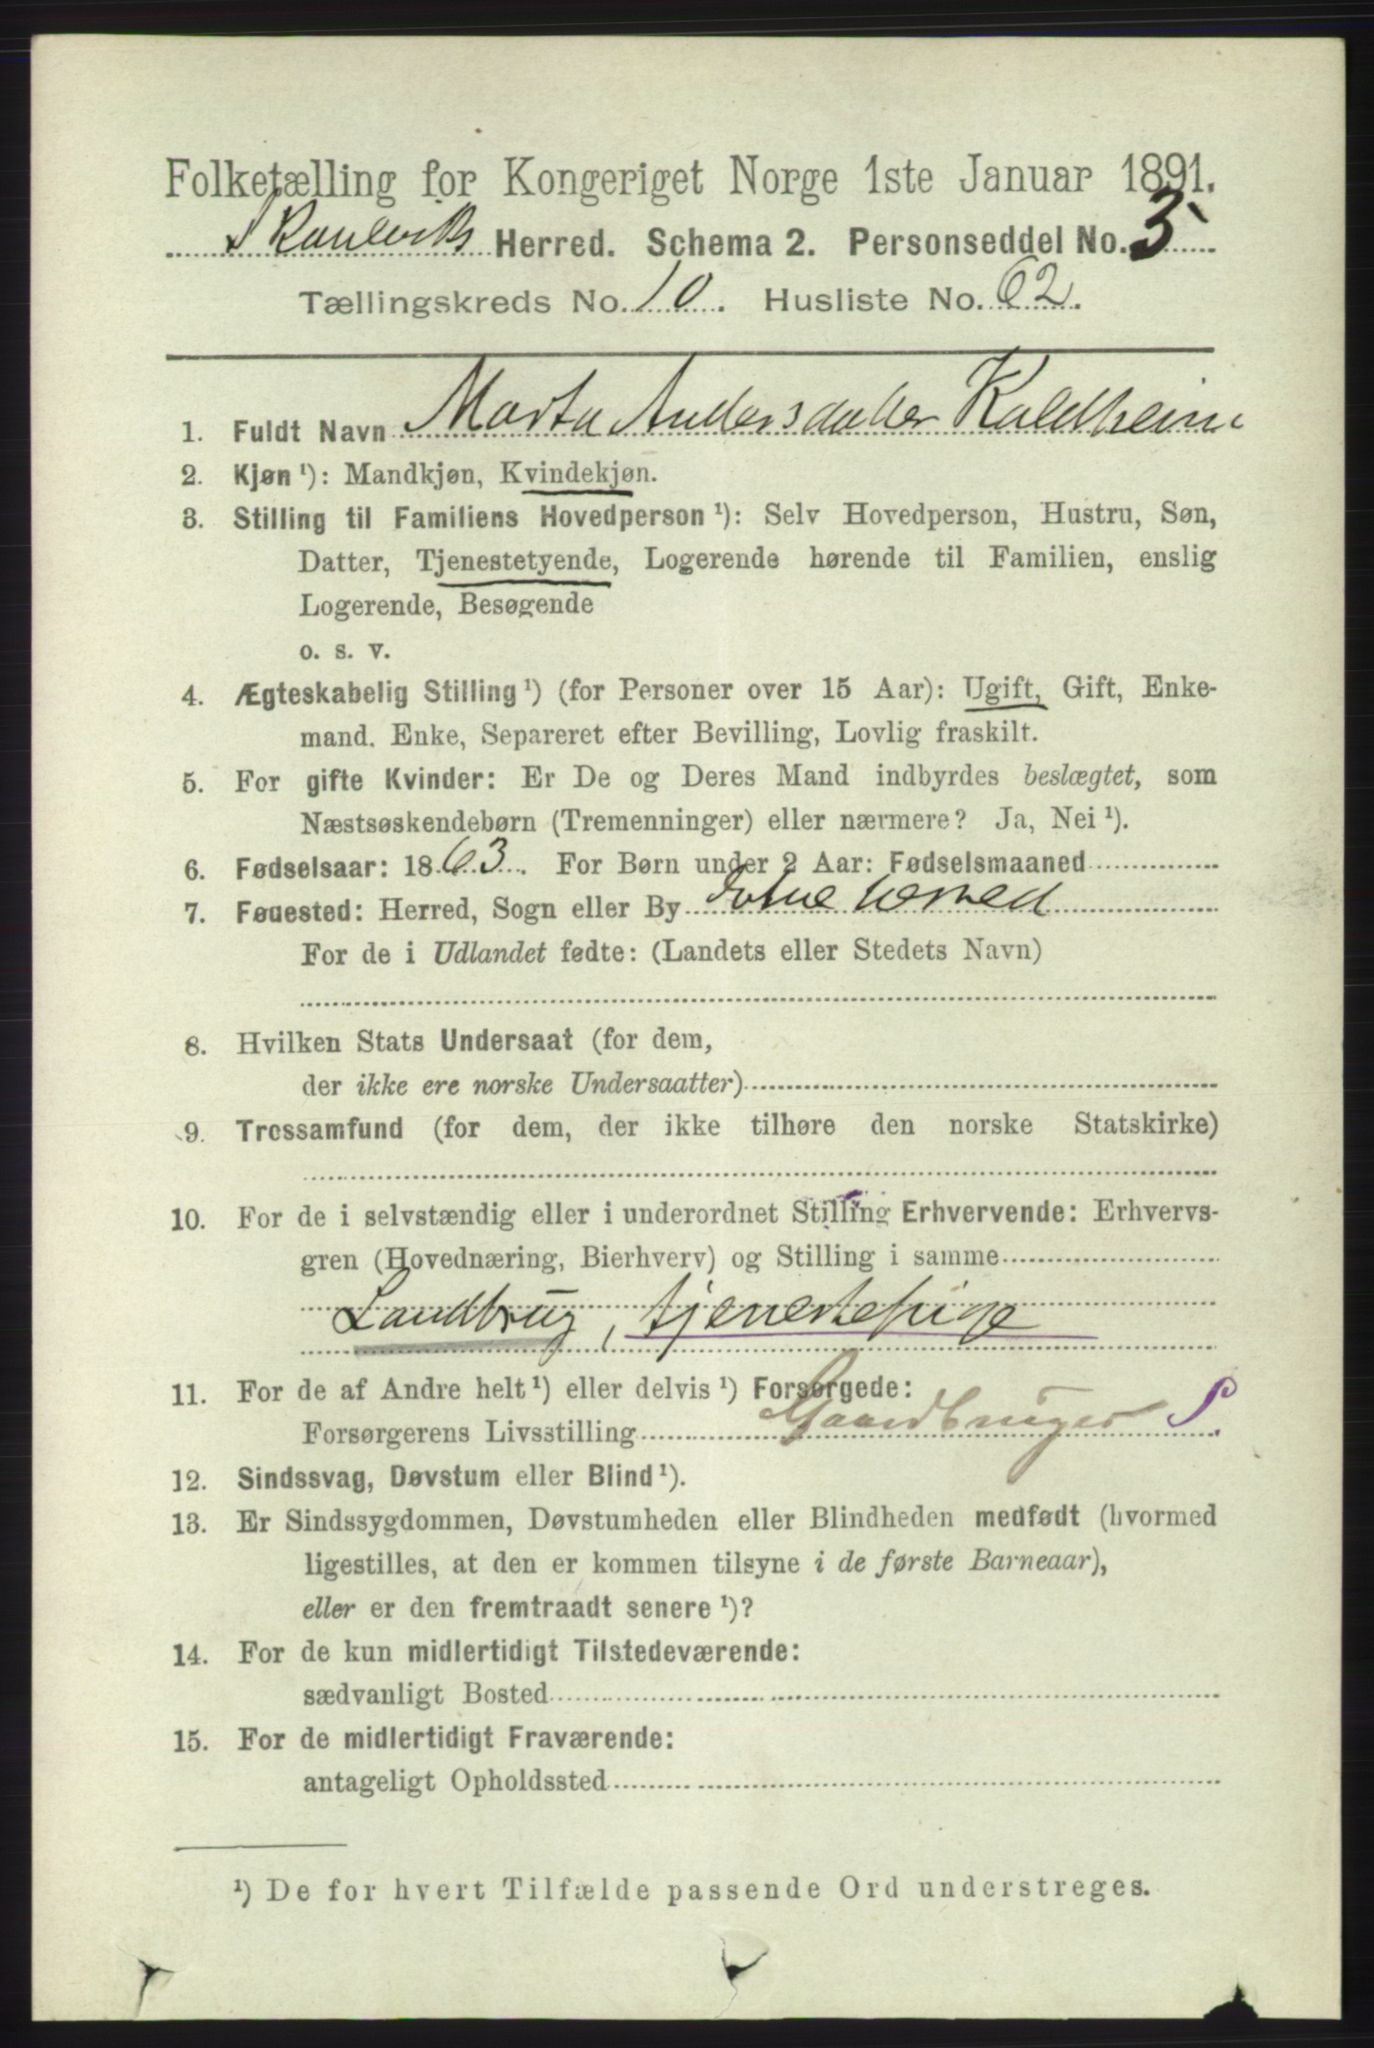 Folketælling for Kongeriget Norge 1ste Januar 1891.
Skaaneviks Herred. Schema 2. Personseddel No. 3
Tællingskreds No. 10. Husliste No. 62.
1. Fuldt Navn Marta Andersdatter Kaldheim
2. Kjøn ¹): Mandkjøn, Kvindekjøn.
3. Stilling til Familiens Hovedperson ¹): Selv Hovedperson, Hustru, Søn,
Datter, Tjenestetyende, Logerende hørende til Familien, enslig
Logerende, Besøgende
o. s. v.
4. Ægteskabelig Stilling ¹) (for Personer over 15 Aar): Ugift, Gift, Enke-
mand. Enke, Separeret efter Bevilling, Lovlig fraskilt.
5. For gifte Kvinder: Er De og Deres Mand indbyrdes beslægtet, som
Næstsøskendebørn (Tremenninger) eller nærmere? Ja, Nei ¹).
6. Fødselsaar: 1863. For Børn under 2 Aar: Fødselsmaaned
7. Føuested: Herred, Sogn eller By Etne Herred
For de i Udlandet fødte: (Landets eller Stedets Navn)
8. Hvilken Stats Undersaat (for dem,
der ikke ere norske Undersaatter)
9. Trossamfund (for dem, der ikke tilhøre den norske Statskirke)
10. For de i selvstændig eller i underordnet Stilling Erhvervende: Erhvervs-
gren (Hovednæring, Bierhverv) og Stilling i samme
Landbrug, tjenestepige
11. For de af Andre helt ¹) eller delvis ¹) Forsørgede:
Forsørgerens Livsstilling Gaardbruger S.
12. Sindssvag, Døvstum eller Blind ¹).
13. Er Sindssygdommen, Døvstumheden eller Blindheden medfødt (hvormed
ligestilles, at den er kommen tilsyne i de første Barneaar),
eller er den fremtraadt senere ¹)?
14. For de kun midlertidigt Tilstedeværende:
sædvanligt Bosted
15. For de midlertidigt Fraværende:
antageligt Opholdssted
¹) De for hvert Tilfælde passende Ord understreges.